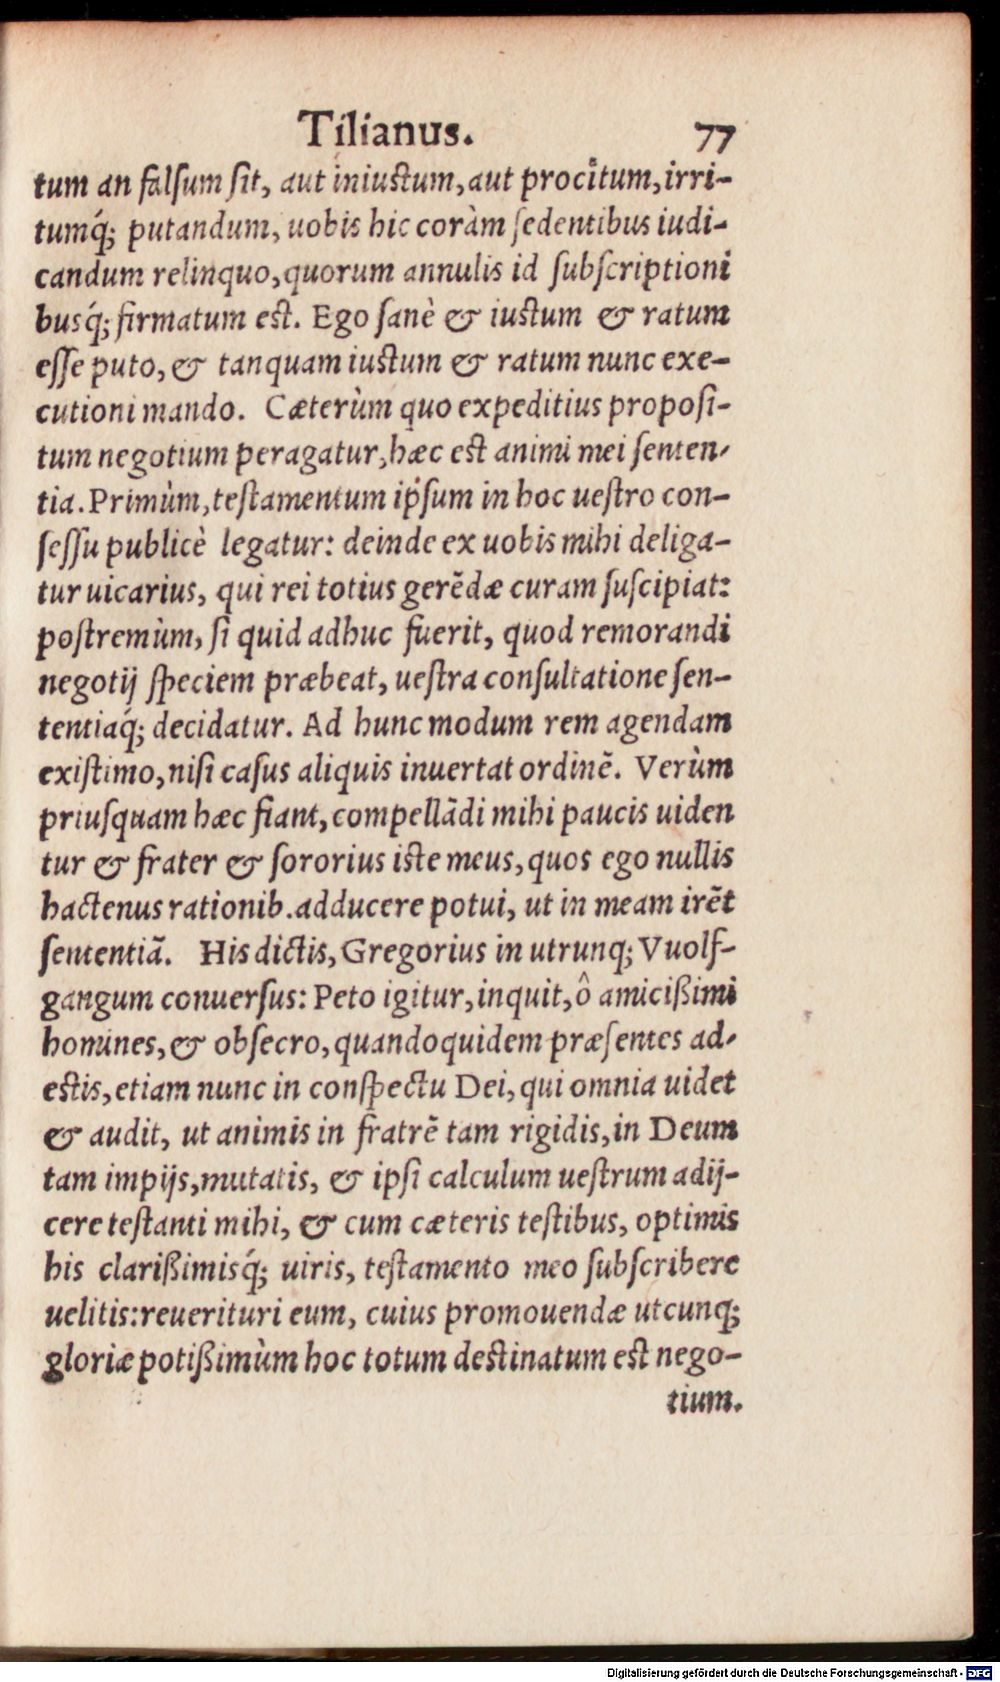 Tilianus. 77
tum an falſum ſit, aut iniuſtum, aut procitum, irri-
tumq́; putandum, uobis hic coràm ſedentibus iudi-
candum relinquo, quorum annulis id ſubſcriptioni
busq́; firmatum eſt. Ego ſanè & iuſtum & ratum
eſſe puto, & tanquam iuſtum & ratum nunc exe-
cutioni mando. Cæterùm quo expeditius propoſi-
tum negotium peragatur, hæc eſt animi mei ſenten-
tia. Primùm, teſtamentum ipſum in hoc ueſtro con-
ſeſſu publicè legatur: deinde ex uobis mihi deliga-
tur uicarius, qui rei totius gerẽdæ curam ſuſcipiat:
poſtremùm, ſi quid adhuc fuerit, quod remorandi
negotij ſpeciem præbeat, ueſtra conſultatione ſen-
tentiaq́; decidatur. Ad hunc modum rem agendam
exiſtimo, niſi caſus aliquis inuertat ordinẽ. Verùm
priuſquam hæc fiant, compellãdi mihi paucis uiden
tur & frater & ſororius iſte meus, quos ego nullis
hactenus rationib. adducere potui, ut in meam irẽt
ſententiã. His dictis, Gregorius in utrunq; Vuolf-
gangum conuerſus: Peto igitur, inquit, ô amicißimi
homines, & obſecro, quandoquidem præſentes ad-
eſtis, etiam nunc in conſpectu Dei, qui omnia uidet
& audit, ut animis in fratrẽ tam rigidis, in Deum
tam impijs, mutatis, & ipſi calculum ueſtrum adij-
cere teſtanti mihi, & cum cæteris teſtibus, optimis
his clarißimisq́; uiris, teſtamento meo ſubſcribere
uelitis: reuerituri eum, cuius promouendæ utcunq;
gloriæ potißimùm hoc totum deſtinatum eſt nego-
tium.
Digitalisierung gefördert durch die Deutsche Forschungsgemeinschaft - DFG